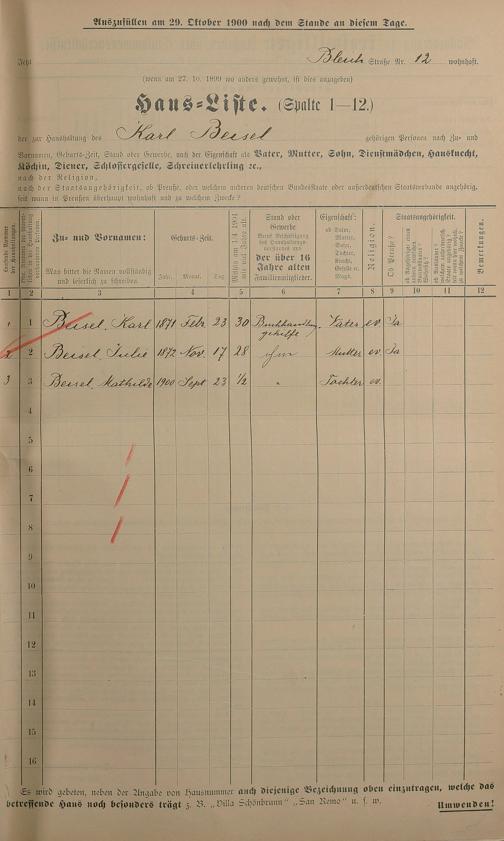 Auszufüllen am 29. Oktober 1900 nach dem Stande an diesem Tage.
Jetzt Bleich Straße Nr. 12 wohnhaft.
(wenn am 27. 10. 1899 wo anders gewohnt, ist dies anzugeben)
Haus-Liste. (Spalte 1—12.)
der zur Haushaltung des Karl Beisel gehörigen Personen nach Zu- und
Vornamen, Geburts-Zeit, Stand oder Gewerbe, nach der Eigenschaft als Vater, Mutter, Sohn, Dienstmädchen, Hausknecht,
Köchin, Diener, Schlossergeselle, Schreinerlehrling ec.,
nach der Religion,
nach der Staatsangehörigkeit, ob Preuße, oder welchem anderen deutschen Bundesstaate oder außerdeutschen Staatsverbande angehörig,
seit wann in Preußen überhaupt wohnhaft und zu welchem Zwecke?
Zu- und Vornamen:
Man bittet die Namen vollständig
und leserlich zu schreiben.
Geburts-Zeit.
Jahr. Monat. Tag
Stand oder
Gewerbe
der über 16
Jahre alten
Familienmitglieder.
Eigenschaft:
ob Vater,
Mutter,
Sohn,
Tochter,
Knecht,
Geselle u.
Magd.
Religion.
Staatsangehörigkeit.
Ob Preuße?
Bemerkungen.
1 2 3 4 5 6 7 8 9 10 11 12
1 1 Beisel, Karl 1871 Febr. 23 30 Buchhandlungsgehilfe Vater ev. Ja
2 2 Beisel, Julie 1872 Nov. 17 28 Mutter ev. Ja
3 3 Beisel, Mathilde 1900 Sept 23 1/2 " Tochter ev.
4
5
6
7
8
9
10
11
12
13
14
15
16
Es wird gebeten, neben der Angabe von Hausnummer auch diejenige Bezeichnung oben einzutragen, welche das
betreffende Haus noch besonders trägt z. B. „Villa Schönbrunn" „San Remo" u. s. w.
Umwenden!